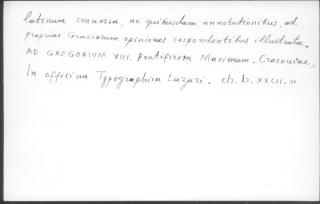 latinum conuersa, ac quibusdam annotationibus, ad
proprias Graecorum opiniones respondentibus illustrata.
AD GREGORIVM XIII. Pontificem Maximum. Cracouiae,
In officina Typographica Lazari. ch. D. XXCII. »